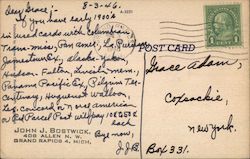 8-3-46.
Dear Grace:-
If you have early 1900's
in used cards with Columbian,
Trans-miss, Pan amer, La. Purchase
Jamestown Ex, Alaska-Yukon,
Hudson-Fulton, Lincoln mem,
Panama Pacific Ex, Pilgrim Ter-
centenary, Huguenot Walloon,
Lex. Concord or Norse american
or Ed Parcel Post will pay
each
Bye now,
J.J.B.
JOHN J. BOSTWICK,
408 ALLEN N. W.
GRAND RAPIDS 4, MICH,
POST CARD
Grace Adam,
Coxsackie,
New York.
Box 331.